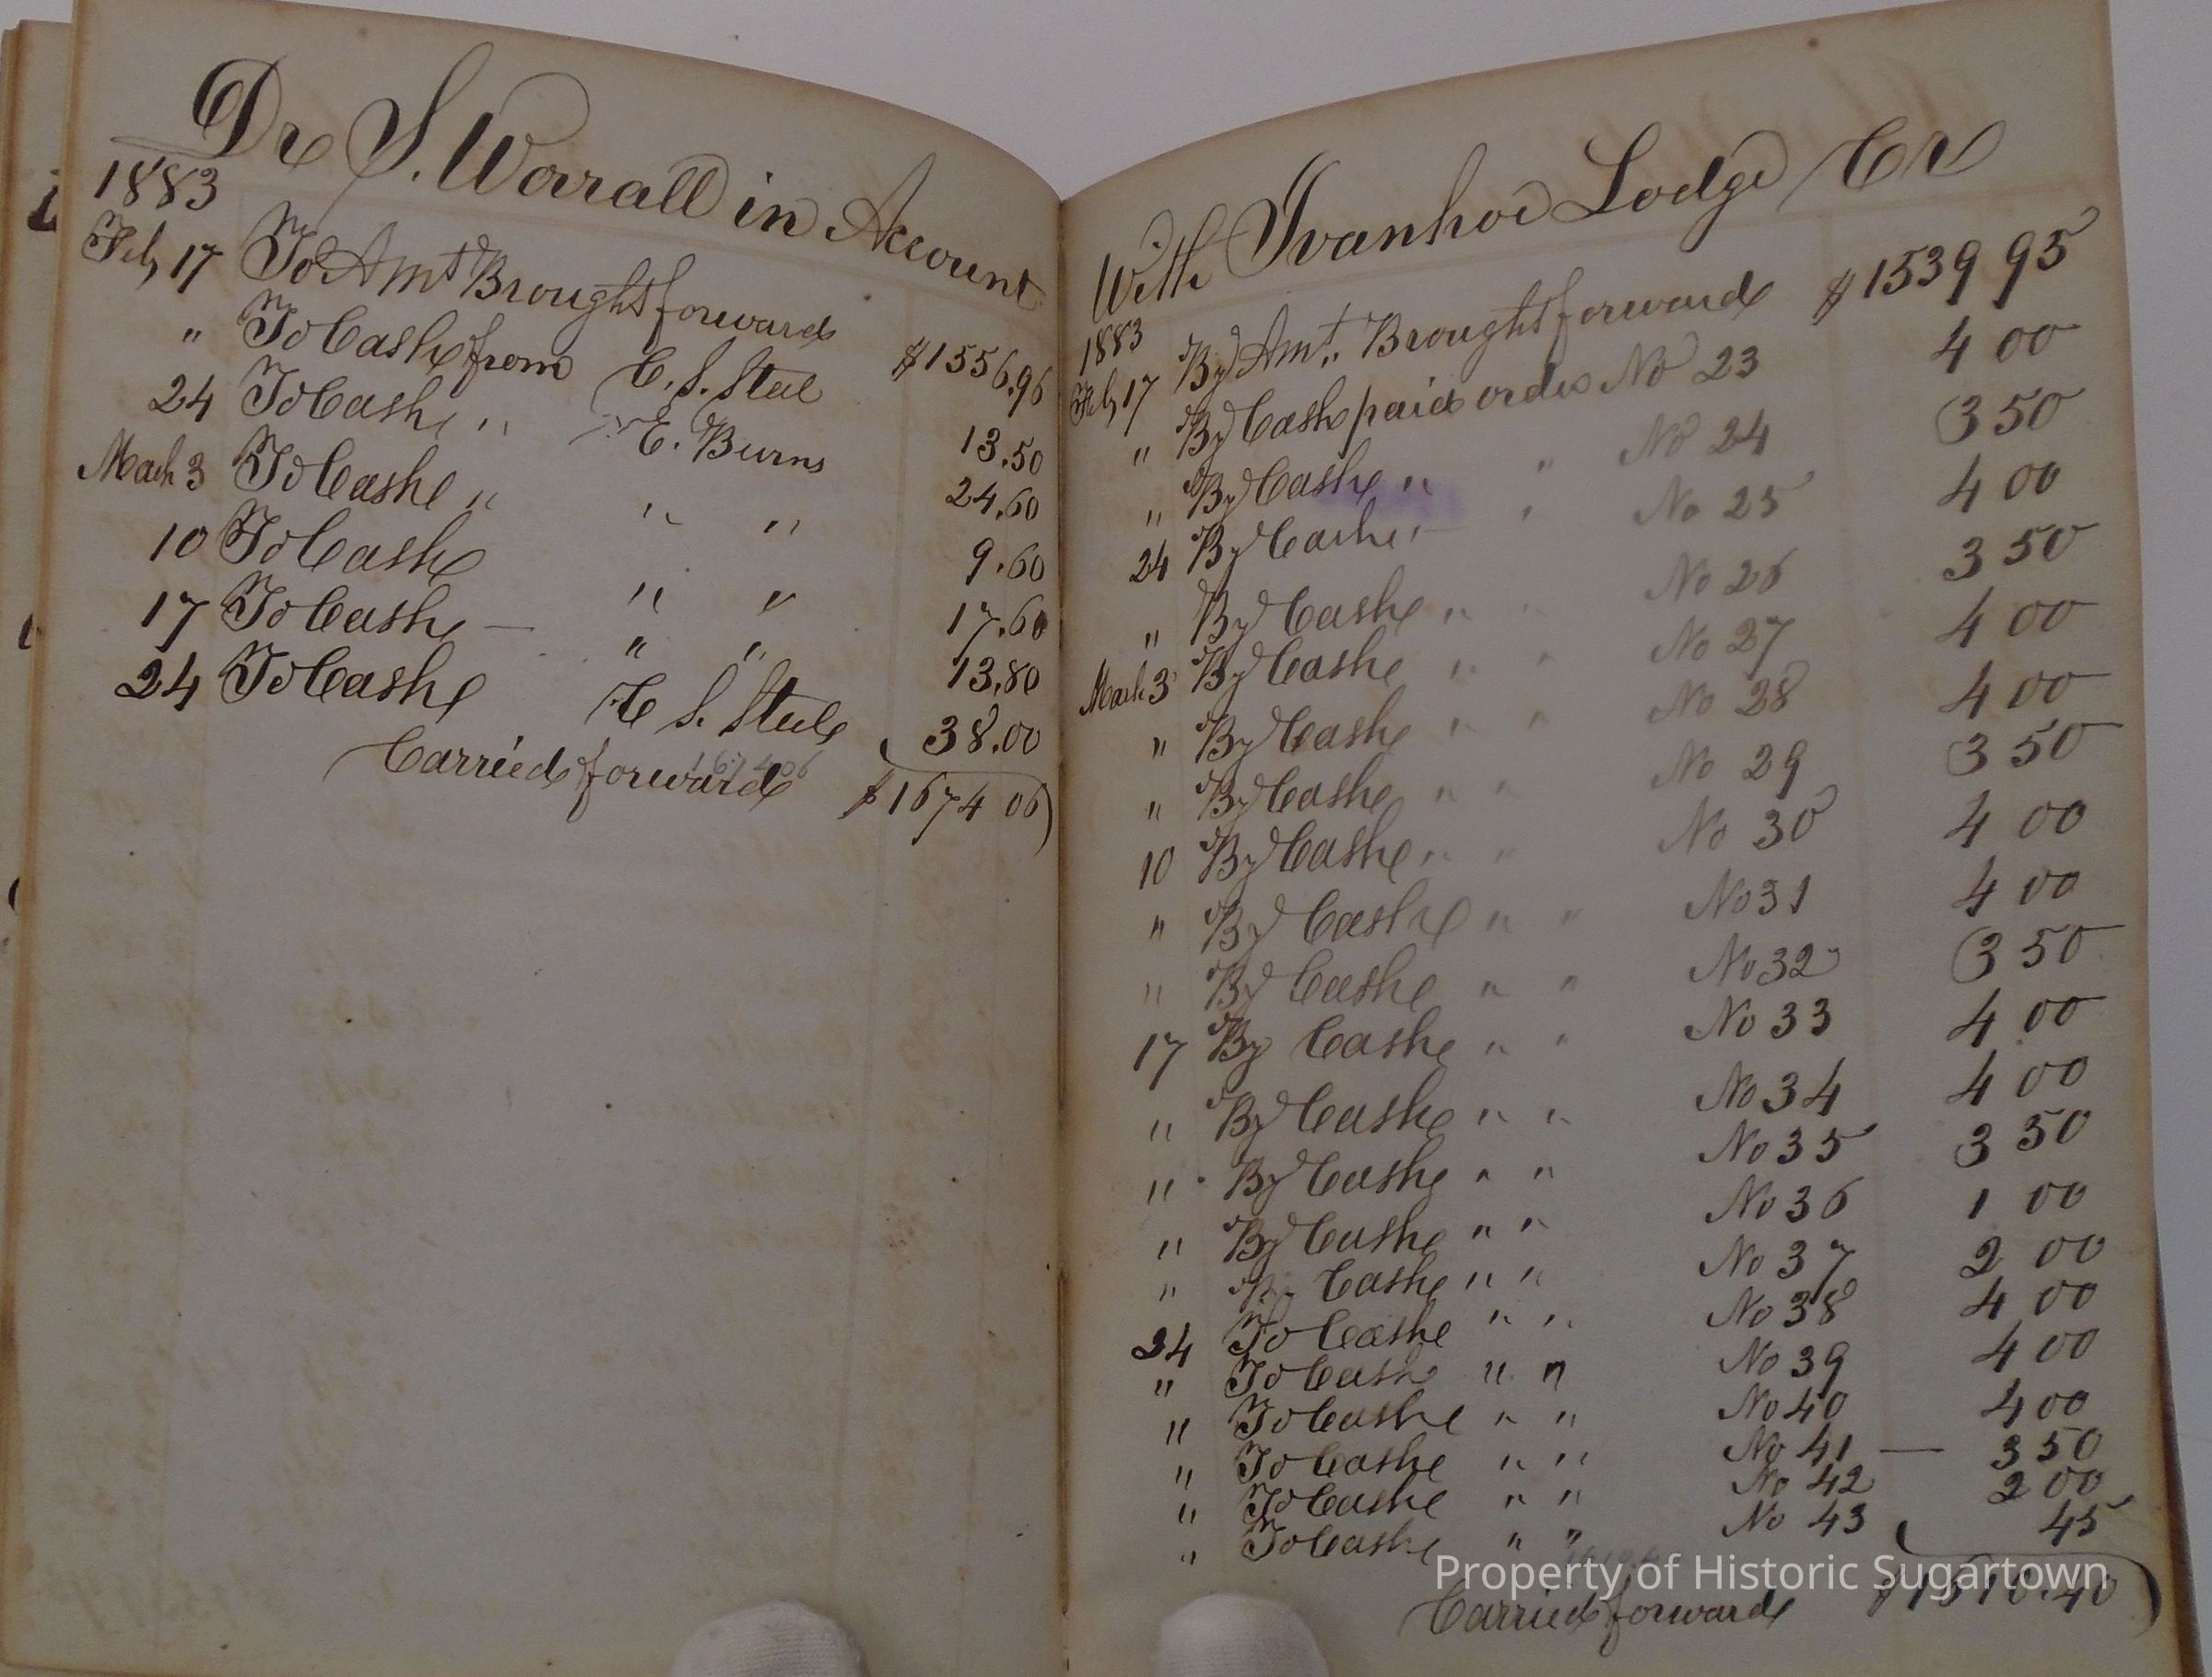 Dr S. Worrall in Account
1883
Feb 17 To Amt Brought forward $1556.96
" To Cash from C. S. Steel 13.50
24 To Cash " E. Burns 24.60
March 3 To Cash " " " 9.60
10 To Cash " " 17.60
17 To Cash — " " 13.80
24 To Cash C S. Steele 38.00
167406
Carried forward $1674 06
With Ivanhoe Lodge Cr
1883
Feb 17 By Amt. Brought forward $1539 95
" By Cash paid order No 23 4 00
" By Cash " " No 24 3 50
24 By Cash " " No 25 4 00
" By Cash " " No 26 3 50
March 3 By Cash " " No 27 4 00
" By Cash " " No 28 4 00
" By Cash " " No 29 3 50
10 By Cash " " No 30 4 00
" By Cash " " No 31 4 00
" By Cash " " No 32 3 50
17 By Cash " " No 33 4 00
" By Cash " " No 34 4 00
" By Cash " " No 35 3 50
" By Cash " " No 36 1 00
" By Cash " " No 37 2 00
24 To Cash " " No 38 4 00
" To Cash " " No 39 4 00
" To Cash " " No 40 4 00
" To Cash " " No 41 — 3 50
" To Cash " " No 42 2 00
" To Cash " " No 43 45
Property of Historic Sugartown
Carried forward $1610.40